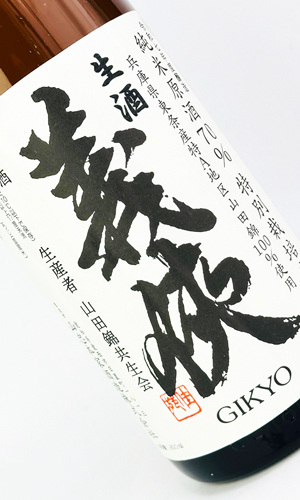 純米原酒70% 特別栽培
兵庫県東条産特A地区山田錦100%使用
生酒
義侠
GIKYO
生産者 山田錦共生会
酒